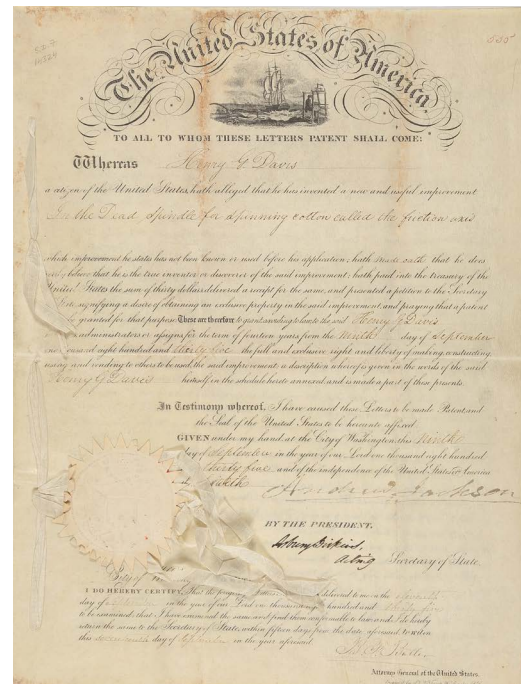 535
The United States of America.
TO ALL TO WHOM THESE LETTERS PATENT SHALL COME:
Whereas Henry G Davis
a citizen of the United States, hath alleged that he has invented a new and useful improvement
In the Dead Spindle for spinning cotton called the friction axis
which improvement he states has not been known or used before his application; hath made oath that he does
verily believe that he is the true inventor or discoverer of the said improvement; hath paid into the treasury of the
United States the sum of thirty dollars, delivered a receipt for the same, and presented a petition to the Secretary
of State, signifying a desire of obtaining an exclusive property in the said improvement, and praying that a patent
be granted for that purpose: These are therefore to grant according to law to the said Henry G Davis
administrators or assigns for the term of fourteen years from the Ninth day of September
one thousand eight hundred and thirty five the full and exclusive right and liberty of making, constructing,
using and vending to others to be used, the said improvement, a description whereof is given in the words of the said
Henry G Davis himself, in the schedule hereto annexed and is made a part of these presents.
In Testimony whereof, I have caused these Letters to be made Patent and
the Seal of the United States to be hereunto affixed.
GIVEN under my hand, at the City of Washington this Ninth
day of September in the year of our Lord one thousand eight hundred
thirty five and of the independence of the United States of America
Andrew Jackson
BY THE PRESIDENT.
Asbury Dickins,
Acting Secretary of State.
City of
I DO HEREBY CERTIFY, That the delivered to me on the
day of in the year of our Lord one thousand eight hundred and thirty five
to be examined; that I have examined the same and find them conformable to law and I do hereby
return the same to the Secretary of State, within fifteen days from the date aforesaid, to wit: on
this day of September in the year aforesaid.
Attorney General of the United States.